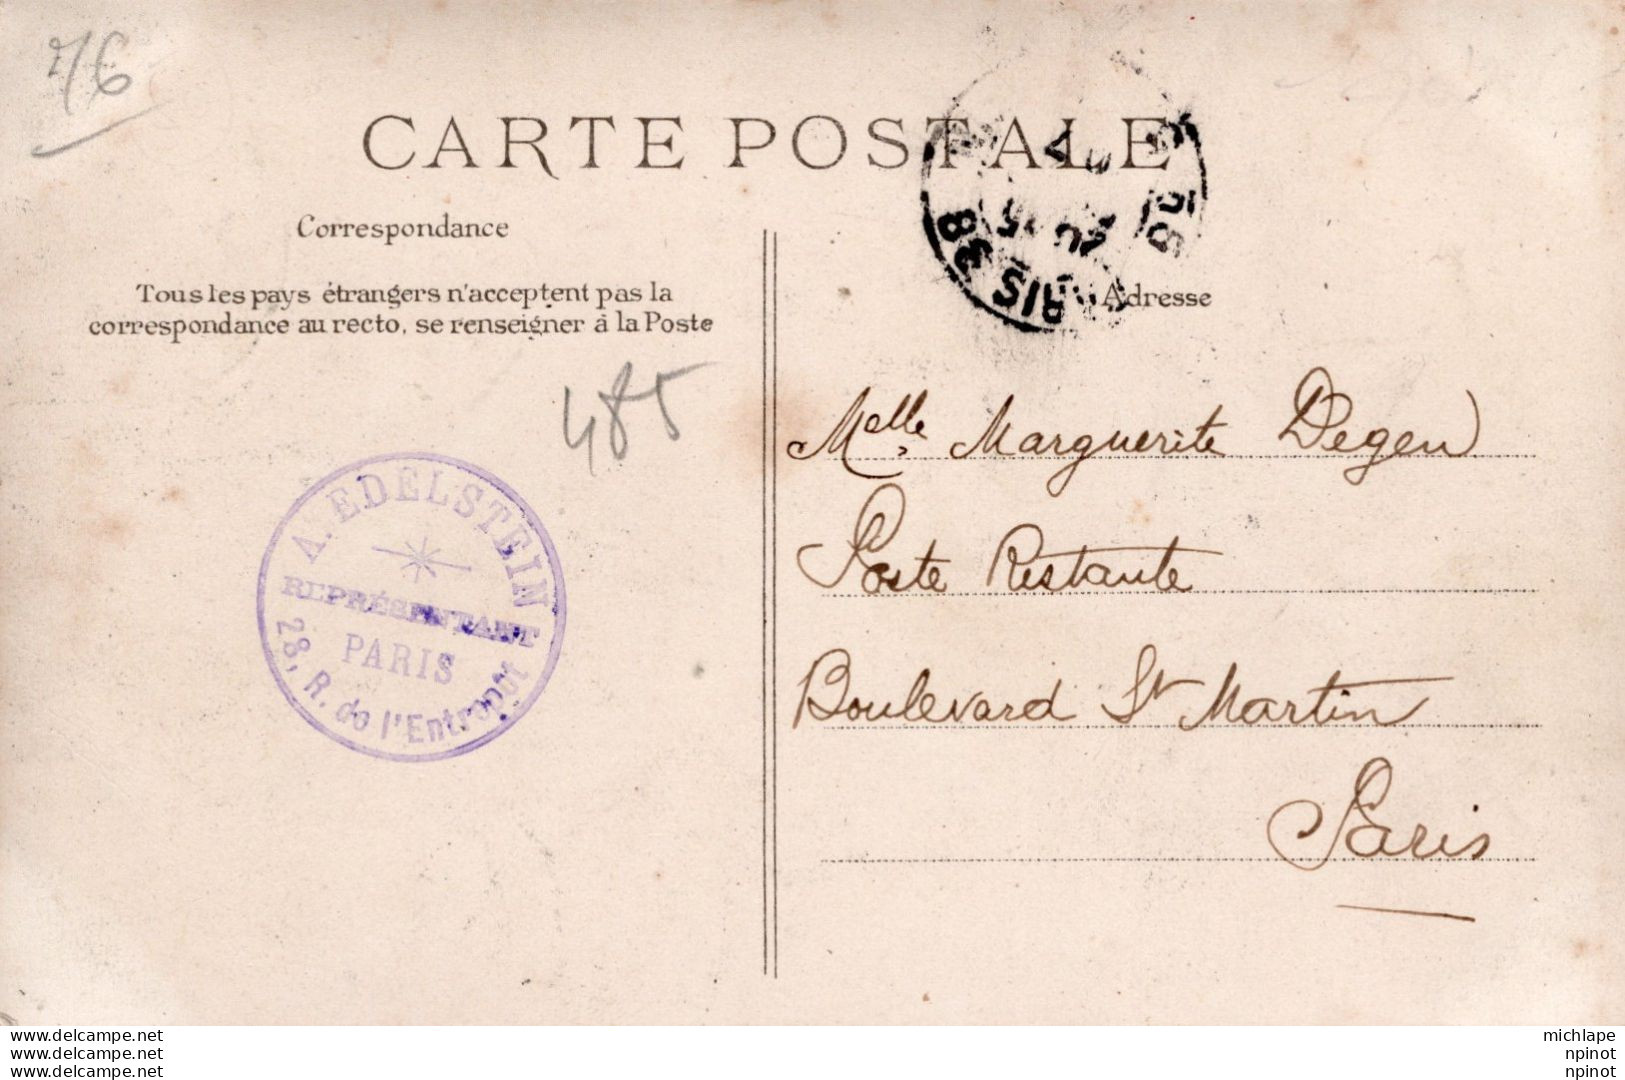 76
CARTE POSTALE
Correspondance
Tous les pays étrangers n'acceptent pas la
correspondance au recto, se renseigner à la Poste
485
A. EDELSTEIN
REPRÉSENTANT
PARIS
28, R. de l'Entrepot
PARIS 38
Adresse
Melle Marguerite Degen
Poste Restante
Boulevard St Martin
Paris
www.delcampe.net
www.delcampe.net
www.delcampe.net
michlape
npinot
npinot